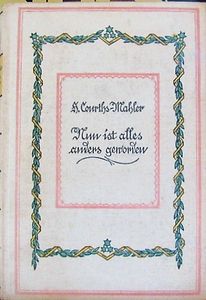 H. Courths-Mahler
Nun ist alles
anders geworden